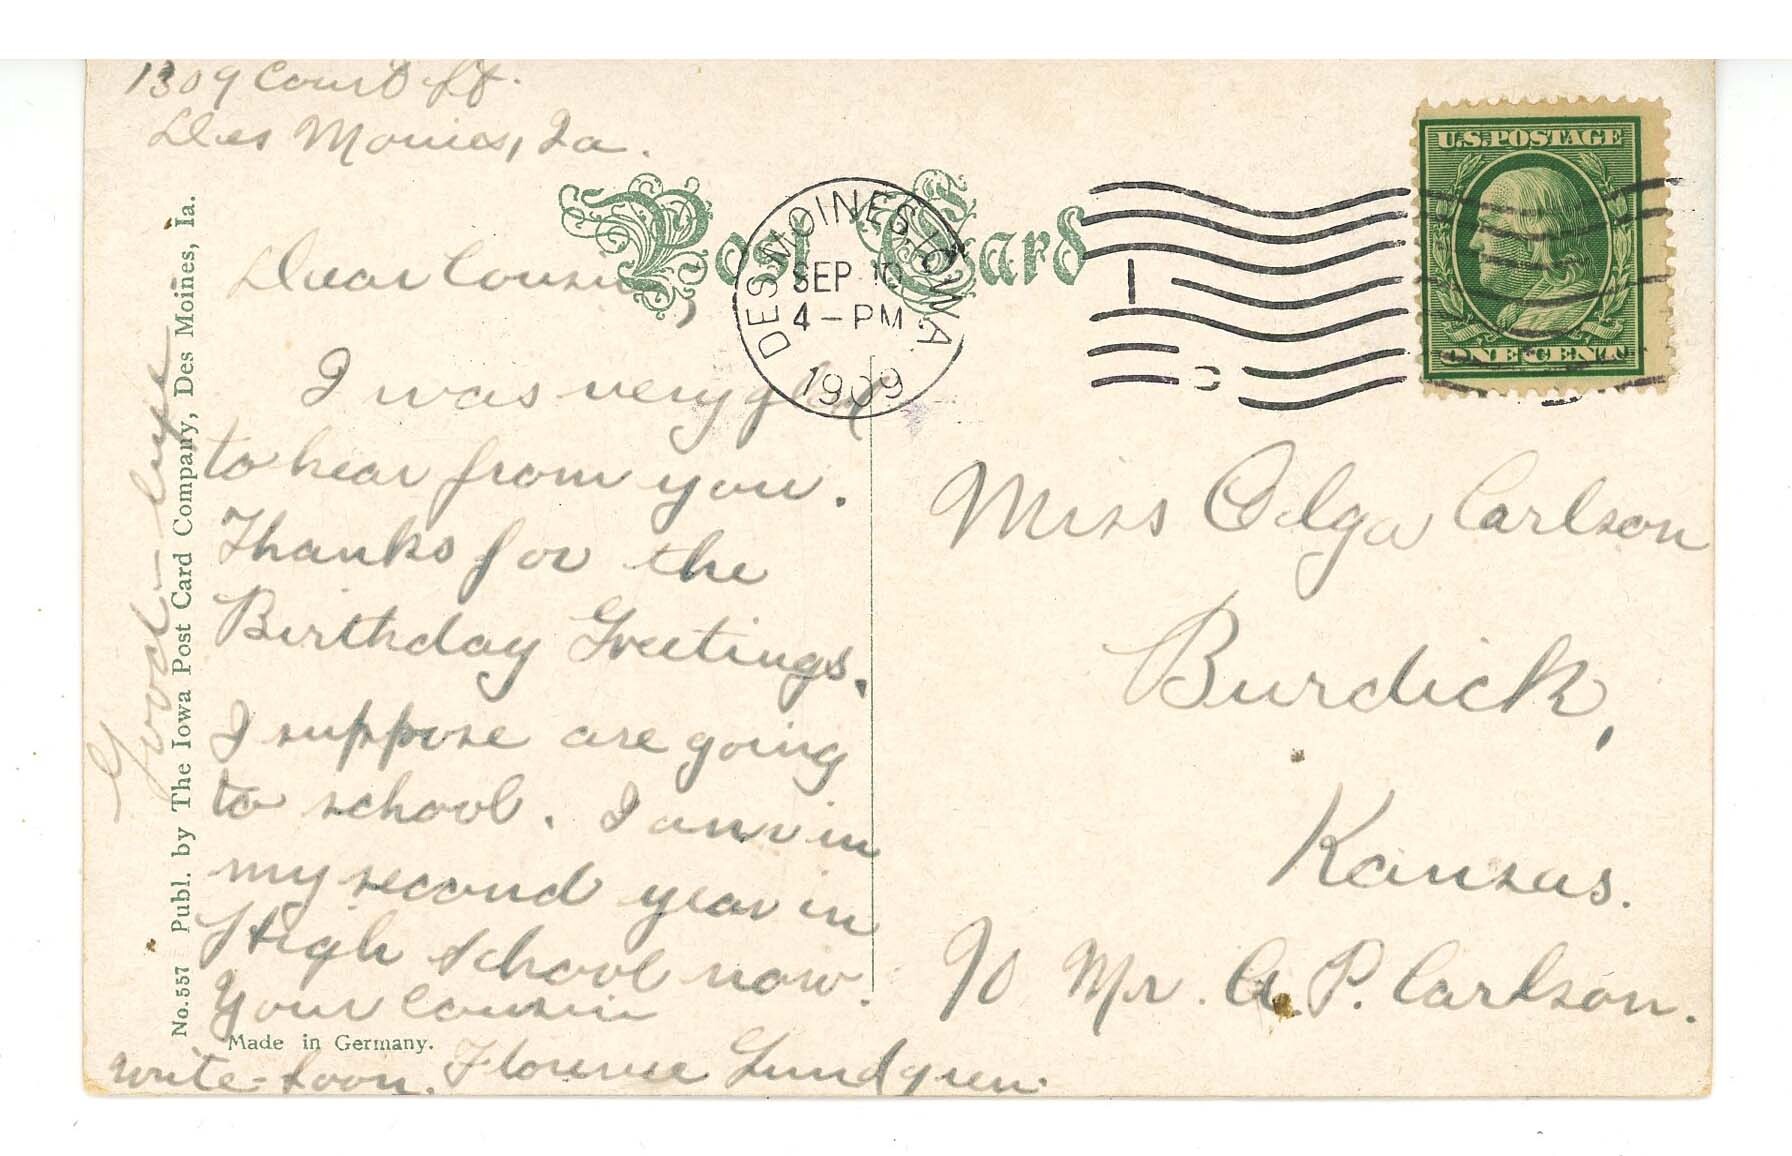 1309 Court St.
Des Moines, Ia.
Post Card
DES MOINES, IOWA
SEP 10
4-PM
1909
U.S. POSTAGE
ONE CENT
Dear Cousin,
I was very glad
to hear from you.
Thanks for the
Birthday Greetings.
I suppose are going
to school. I am in
my second year in
High School now.
Your Cousin
Florence Lundgren.
write-soon.
Good-bye
Miss Olga Carlson
Burdick,
Kansas.
℅ Mr. A. P. Carlson.
No. 557 Publ. by The Iowa Post Card Company, Des Moines, Ia.
Made in Germany.